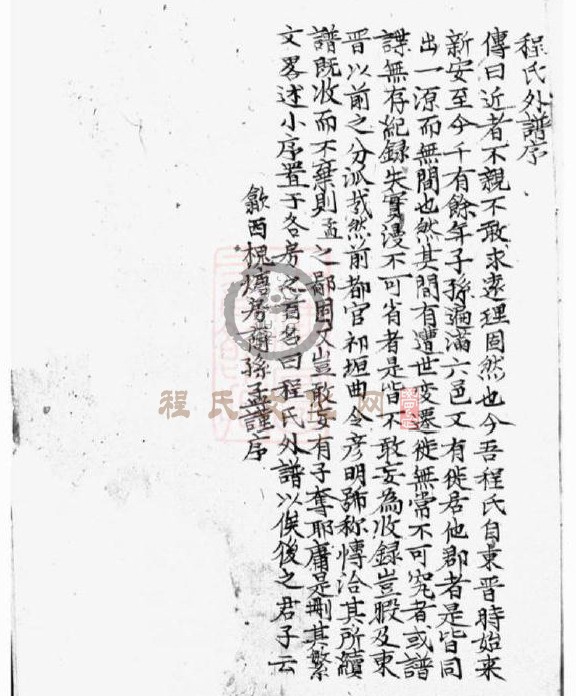 程氏外譜序
傳曰近者不親不敢求遠理固然也今吾程氏自東晋時始来
新安至今千有餘年子孫遍滿六邑又有徙居他郡者是皆同
出一源而無間也然其間有遭世变遷徙無常不可究者或譜
諜無存紀録失實漫不可省者是皆不敢妄為收録豈暇及東
晋以前之分派哉然前都官祁垣曲令彦明號称愽洽其所續
譜既收而不棄則孟之鄙固又豈敢妄有予奪耶庸是刪其繁
文畧述小序置于各房之首名曰程氏外譜以俟後之君子云
歙西槐塘居裔孫孟謹序
程氏文 网